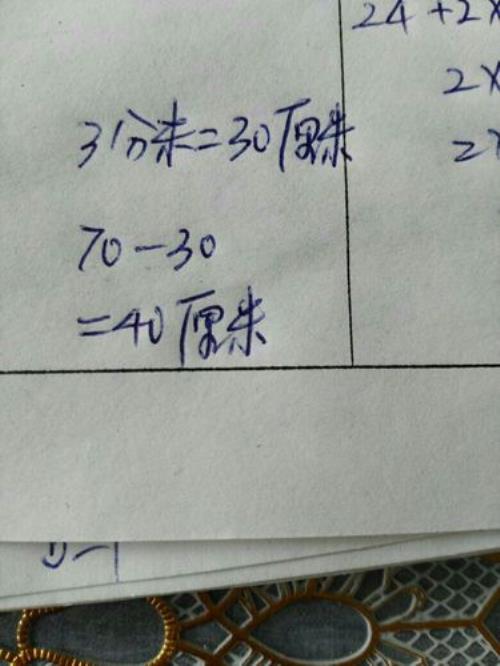 3分米=30厘米
70-30
=40厘米
24+2x
2x
2x